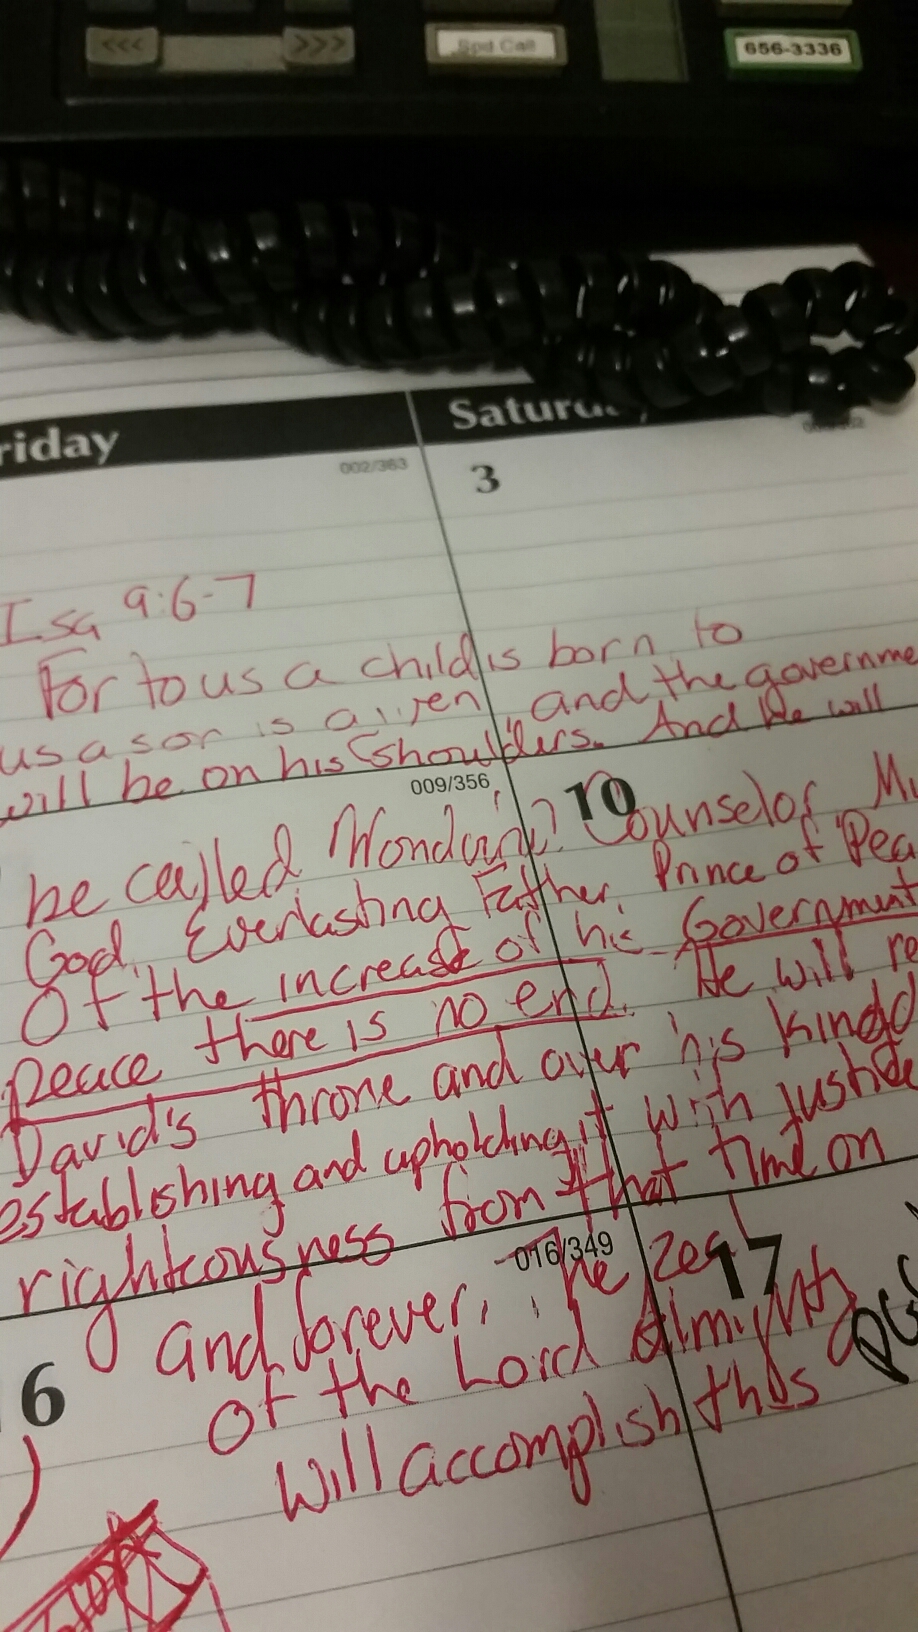 <<< >>> Spd Call 656-3336
riday Satur
002/363 3
Isa 9:6-7
For to us a child is born to
us a son is given and the governme
will be on his shoulders. And He will
009/356 10
be called Counselor M
God, Everlasting Father, Prince of Pea
Of the increase of his Government
peace there is no end. He will re
David's throne and over his Kingd
establishing and upholding it with justice
righteousness from that time on
016/349 17
and forever, The zeal
6 of the Lord Almighty
will accomplish this